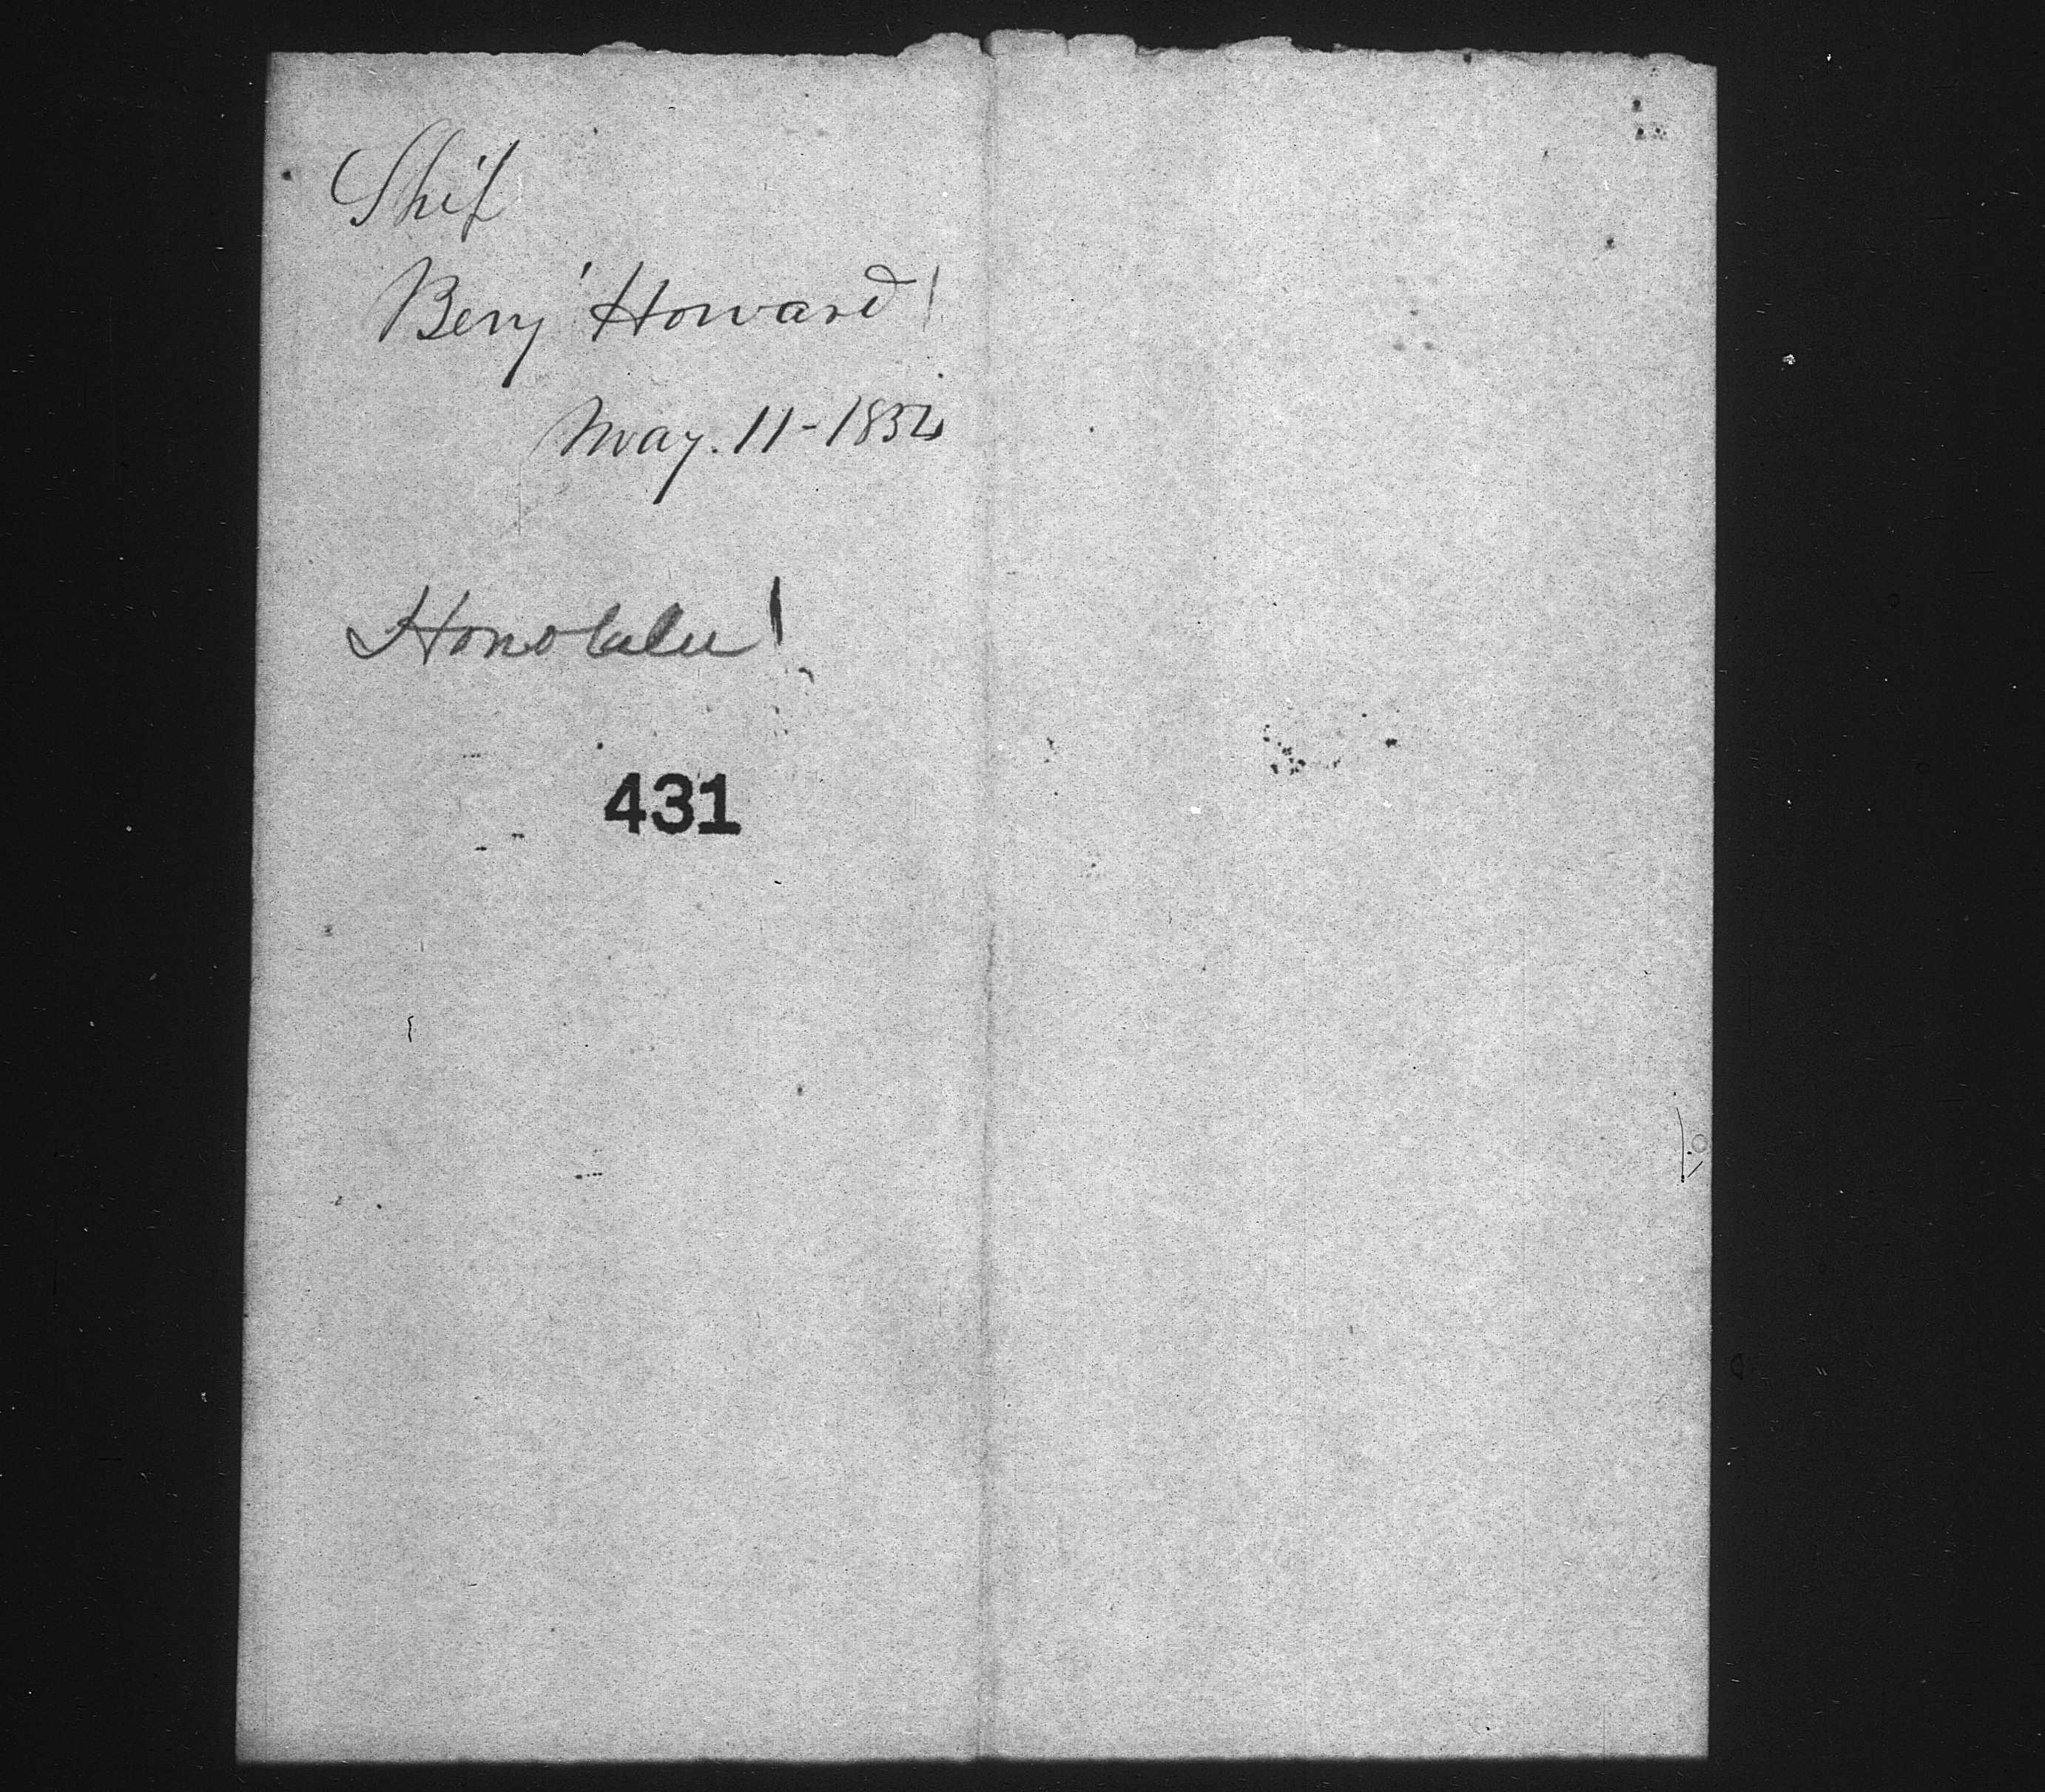 Ship
Benj Howard
May. 11-1854
Honolulu
431